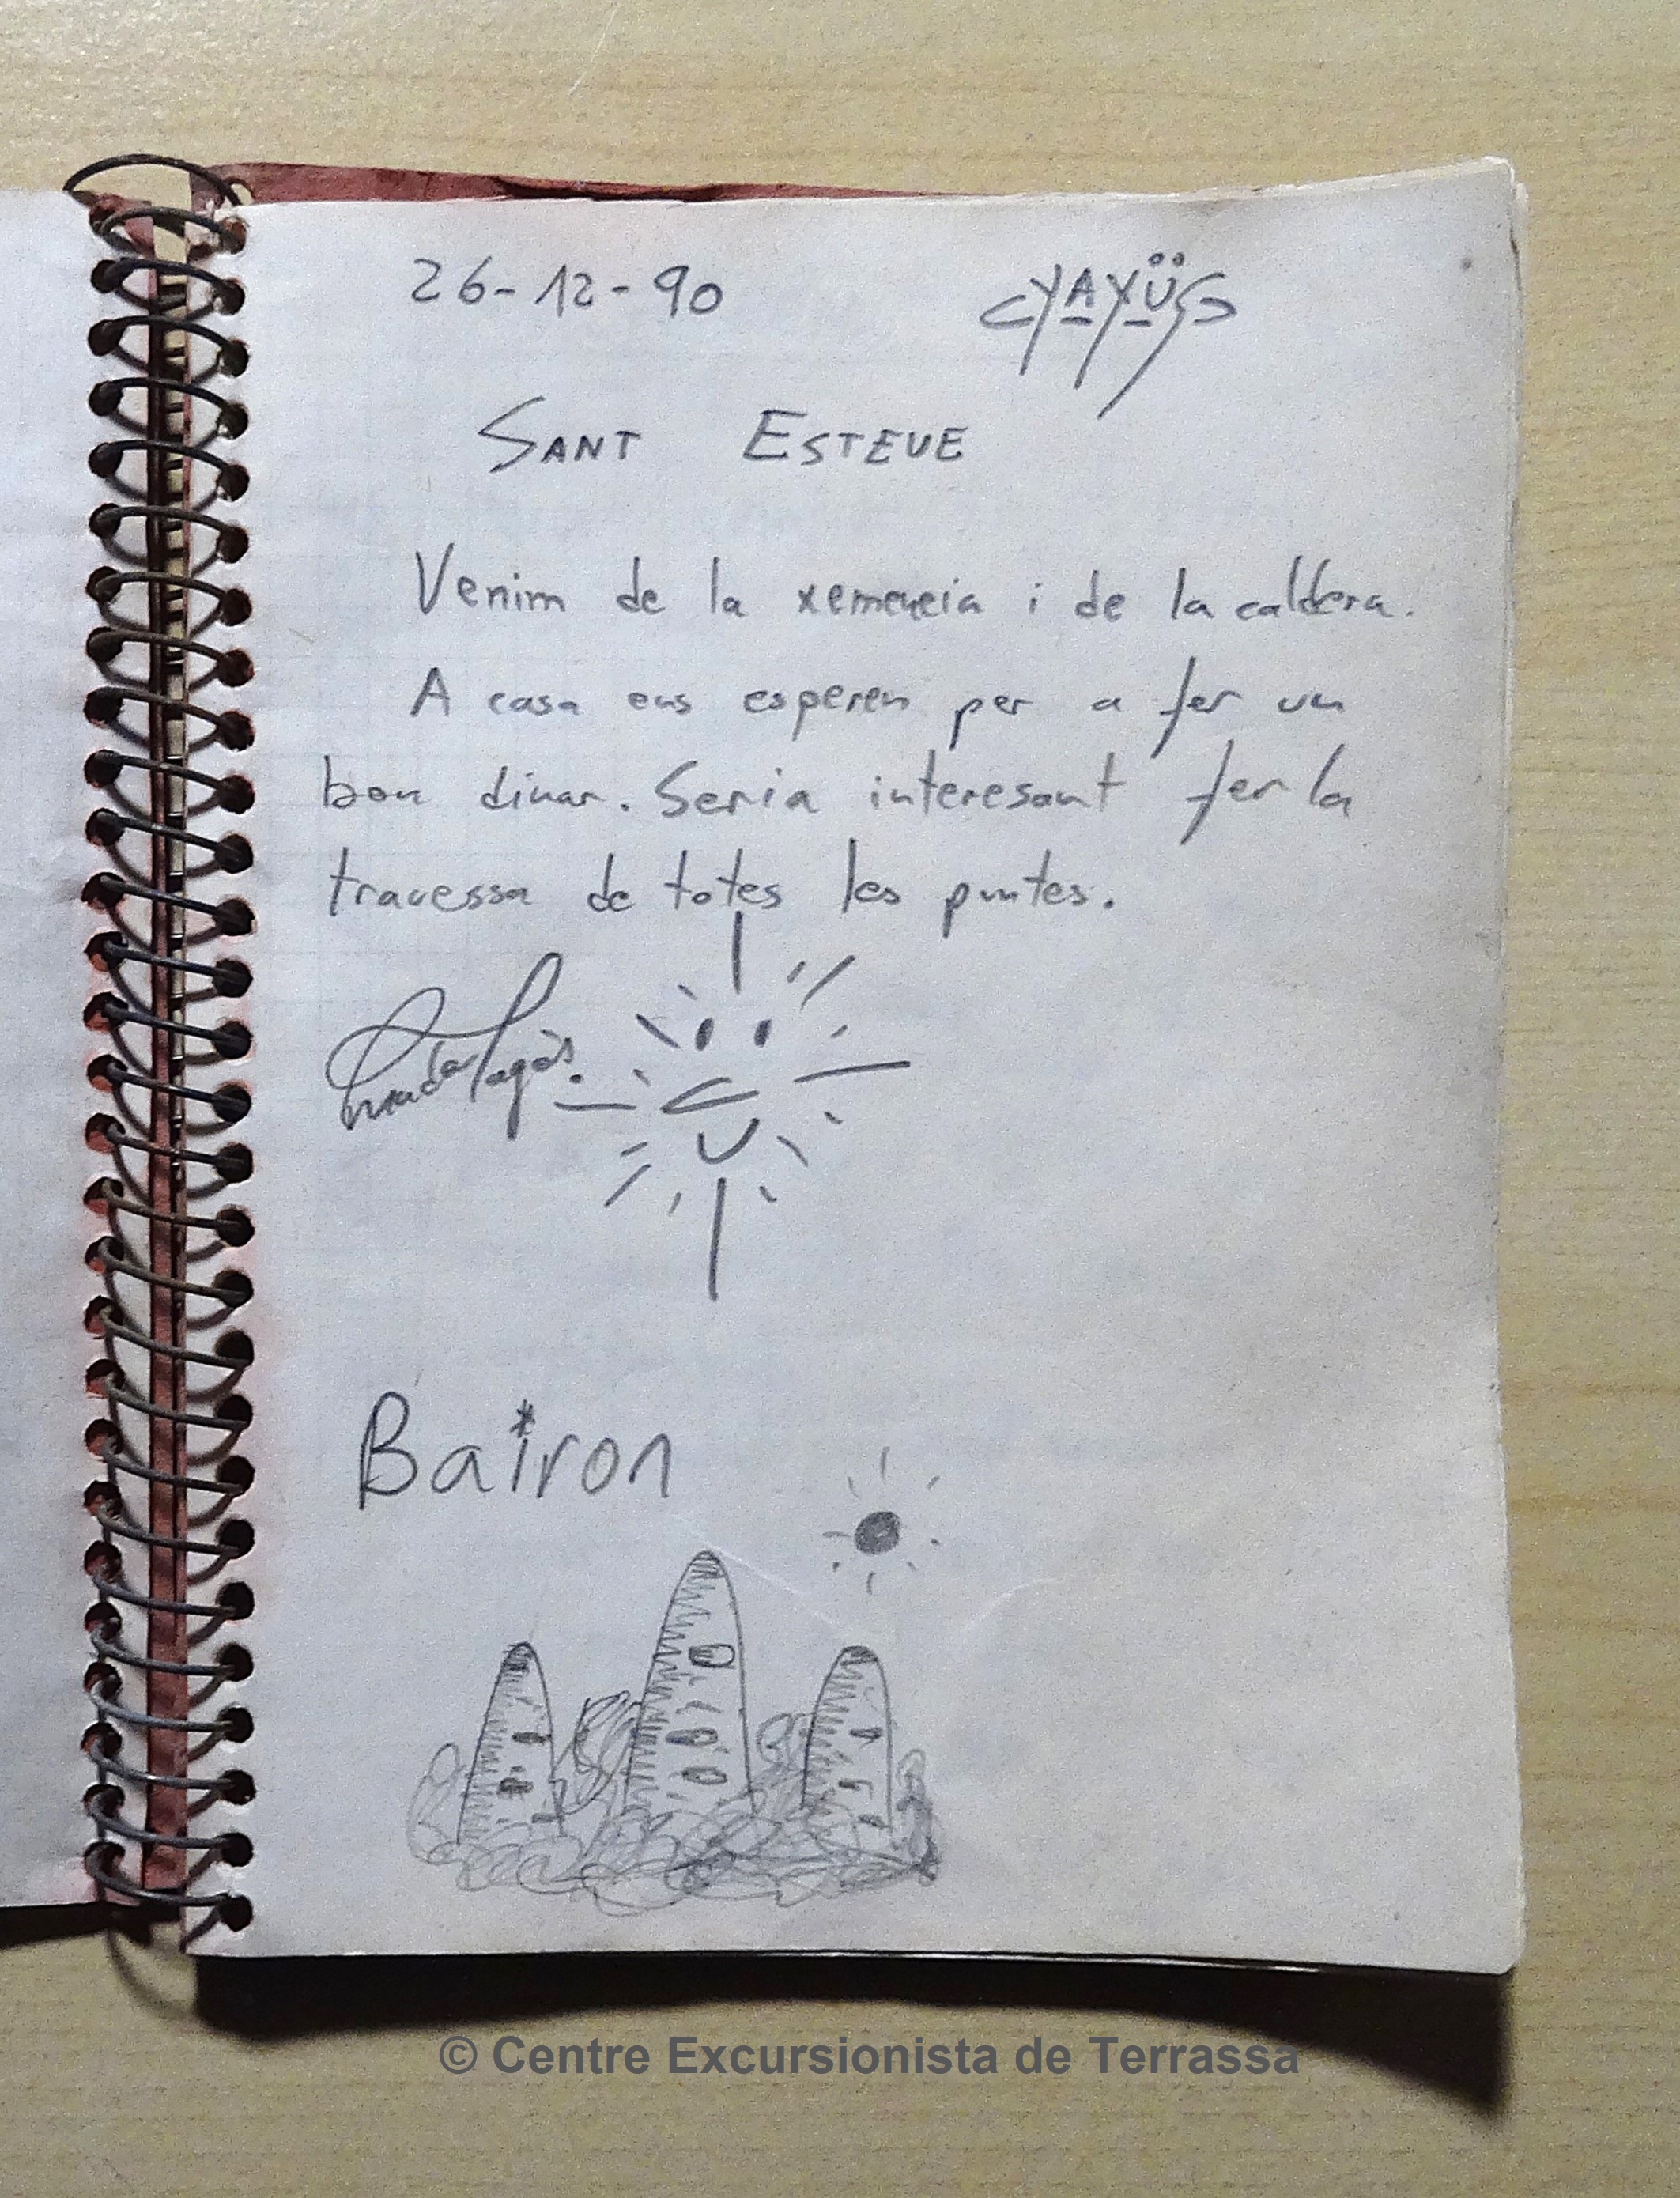 26-12-90
YAYÜS
SANT ESTEVE
Venim de la xemeneia i de la caldera.
A casa ens esperen per a fer un
bon dinar. Seria interesant fer la
travessa de totes les puntes.
Bairon
© Centre Excursionista de Terrassa